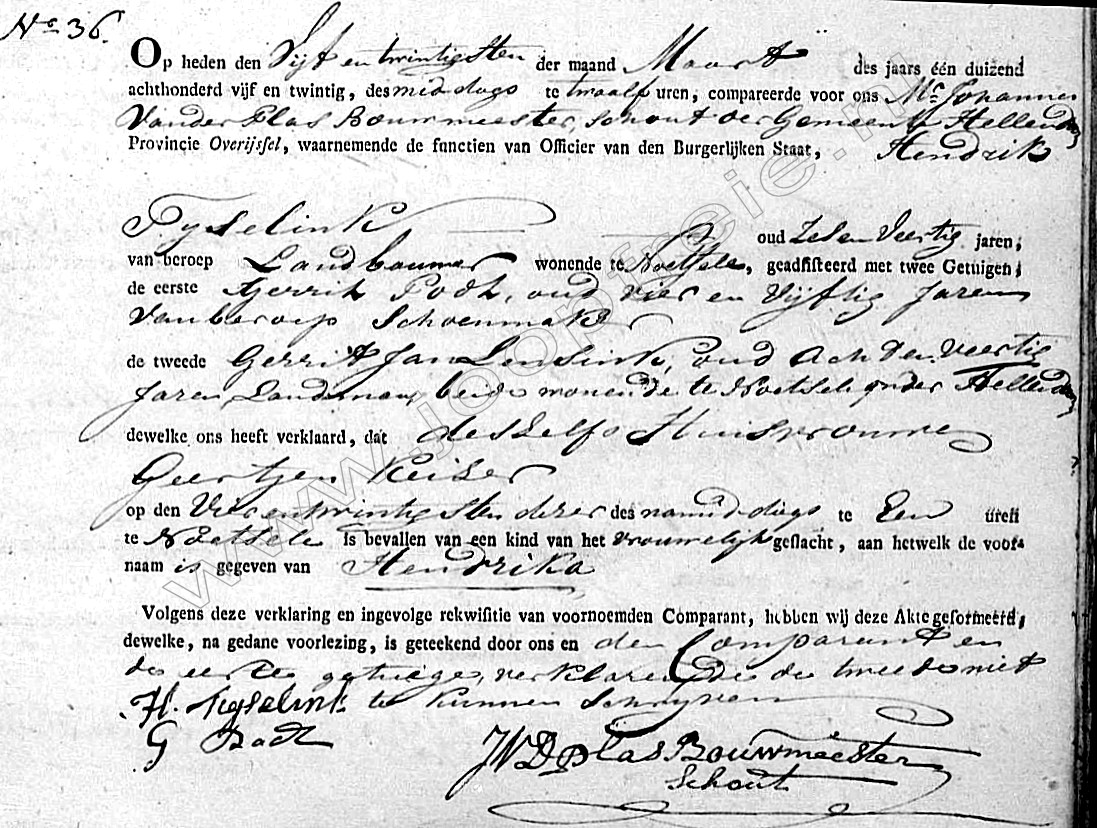 No 36.
Op heden den Vijf en twintigsten der maand Maart des jaars één duizend
achthonderd vijf en twintig, des middags te twaalf uren, compareerde voor ons Mr. Johannes
Vander Plas Bouwmeester, Schout der Gemeente Hellend
Provincie Overijssel, waarnemende de functien van Officier van den Burgerlijken Staat, Hendrik
Tyselink oud Zes en Veertig jaren,
van beroep Landbouwer wonende te Noetsele, geadsisteerd met twee Getuigen,
de eerste Gerrit, oud vier en Vijftig Jaren
Van beroep Schoenmaker
de tweede Gerrit Jan Lensink, oud Acht en veertig
Jaren, Landman, beide wonende te Noetsele onder Hellend
dewelke ons heeft verklaard, dat deszelfs Huisvrouwe
Geertjen Keiser
op den Vier en twintigsten dezer des namiddags te Een uren
te Noetsele is bevallen van een kind van het vrouwelijk geslacht, aan hetwelk de voor-
naam is gegeven van Hendrika
Volgens deze verklaring en ingevolge rekwisitie van voornoemden Comparant, hebben wij deze Akte geformeerd,
dewelke, na gedane voorlezing, is geteekend door ons en den Comparant en
de eerste getuige, verklarende de tweede niet
H. Tyselink te kunnen Schryven
G
JVD Plas Bouwmeester
Schout
www.joopfreie.nl